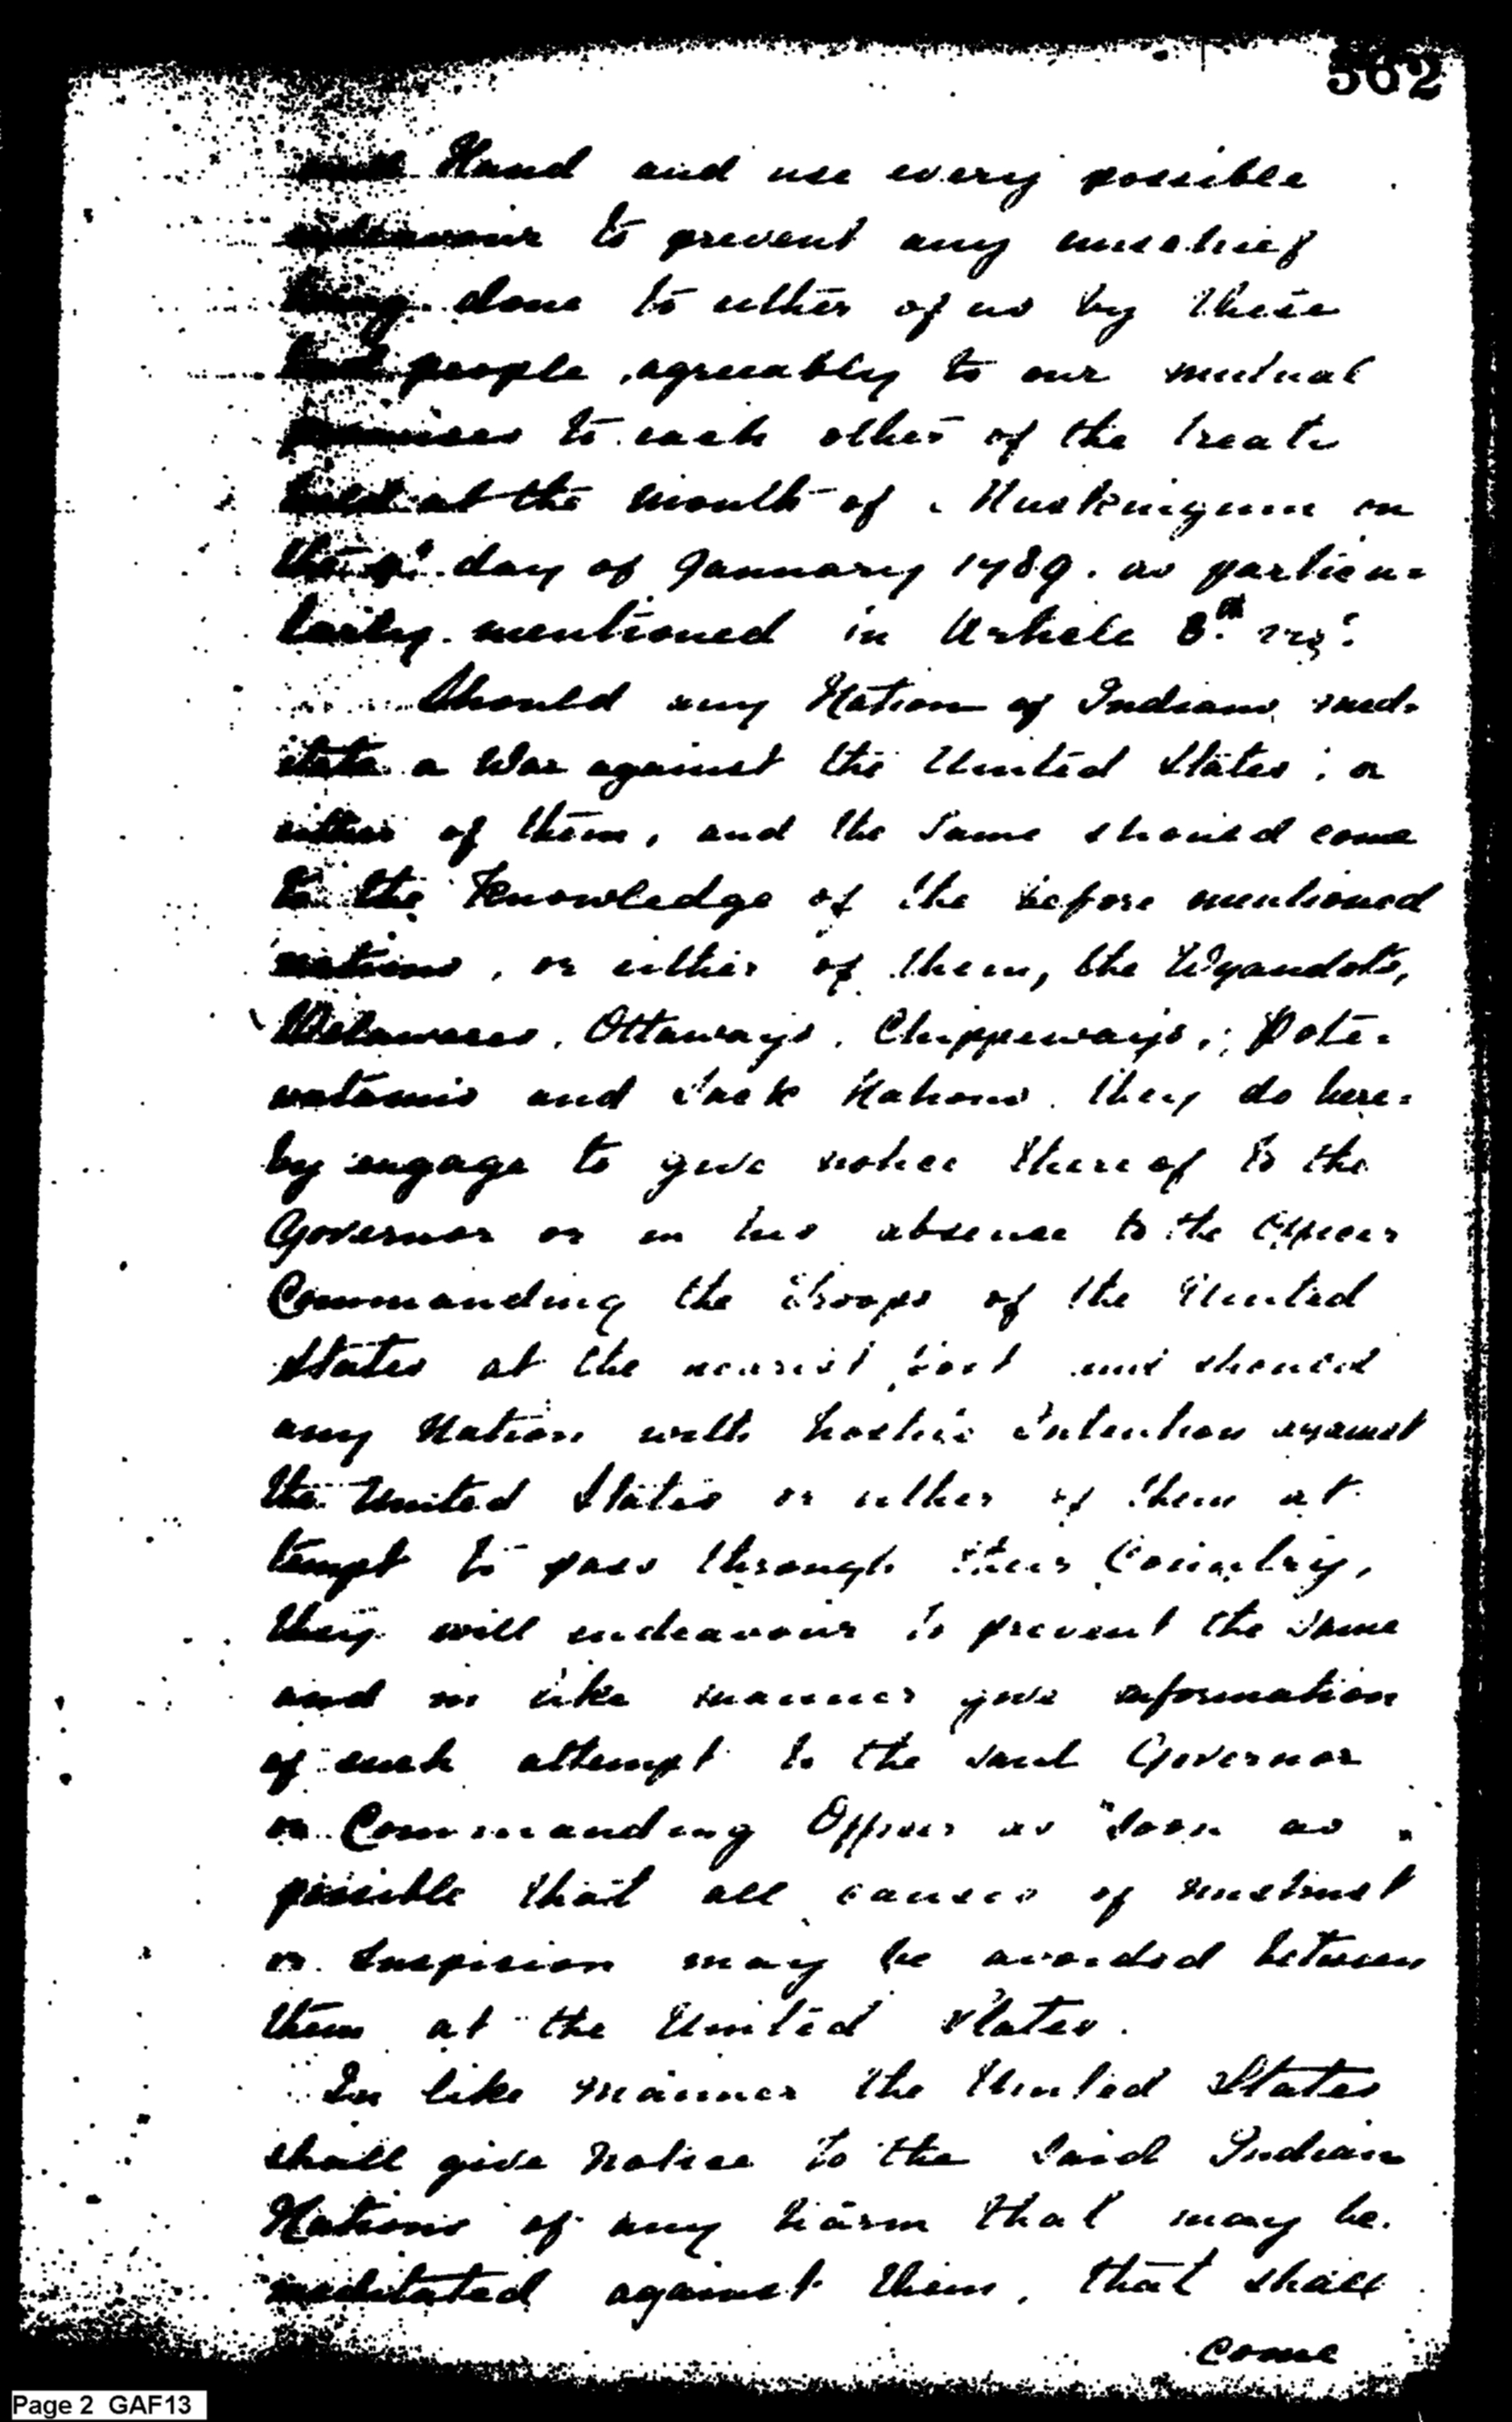 562
Hand and use every possible
endeavour to prevent any mischief
being done to either of us by these
bad people, agreeably to our mutual
promises to each other of the treaty
held at the mouth of Muskingum on
the day of January 1789. as particu=
larly mentioned in Article 8.th viz.
Should any Nation of Indians med-
itate a War against the United States, or
either of them, and the same should come
to the Knowledge of the before mentioned
nations, or either of them, the Wyandots,
Delawares, Ottaways, Chippeways, Pote=
watamis and Sack Nations. they do here=
by engage to give notice thereof to the
Governor or in his absence to the Officer
Commanding the troops of the United
States at the nearest post and should
any Nation with hostile Intention against
the United States or either of them at
tempt to pass through their Country,
they will endeavour to prevent the same
and in like manner give information
of such attempt to the said Governor
or Commanding Officer as soon as
possible that all causes of mistrust
or Suspision may be avoided between
them at the United States.
In like manner the United States
shall give Notice to the said Indian
Nations of any harm that may be.
meditated against them, that shall
come
Page 2 GAF13